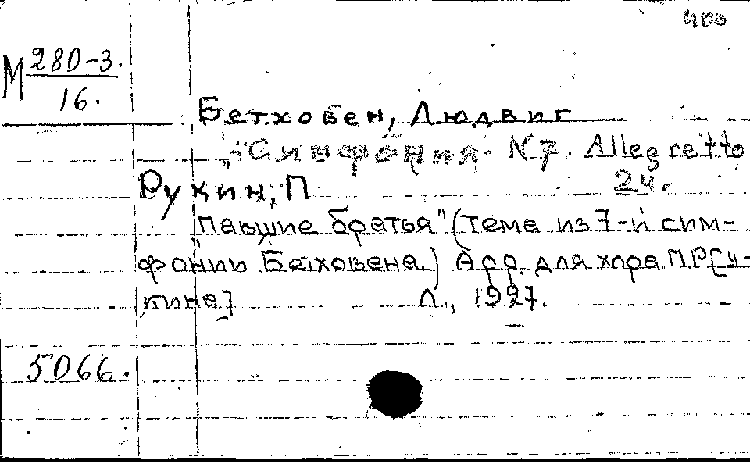 400
М 280-3.
16.
Бетховен, Людвиг
"Симфония N7. Allegretto
2ч.
Рукин, П
"павшие братья" (тема из 7-й сим-
фонии Бетховена) Арр. для хора П.Р[у-
кина]
Л., 1927.
5066.